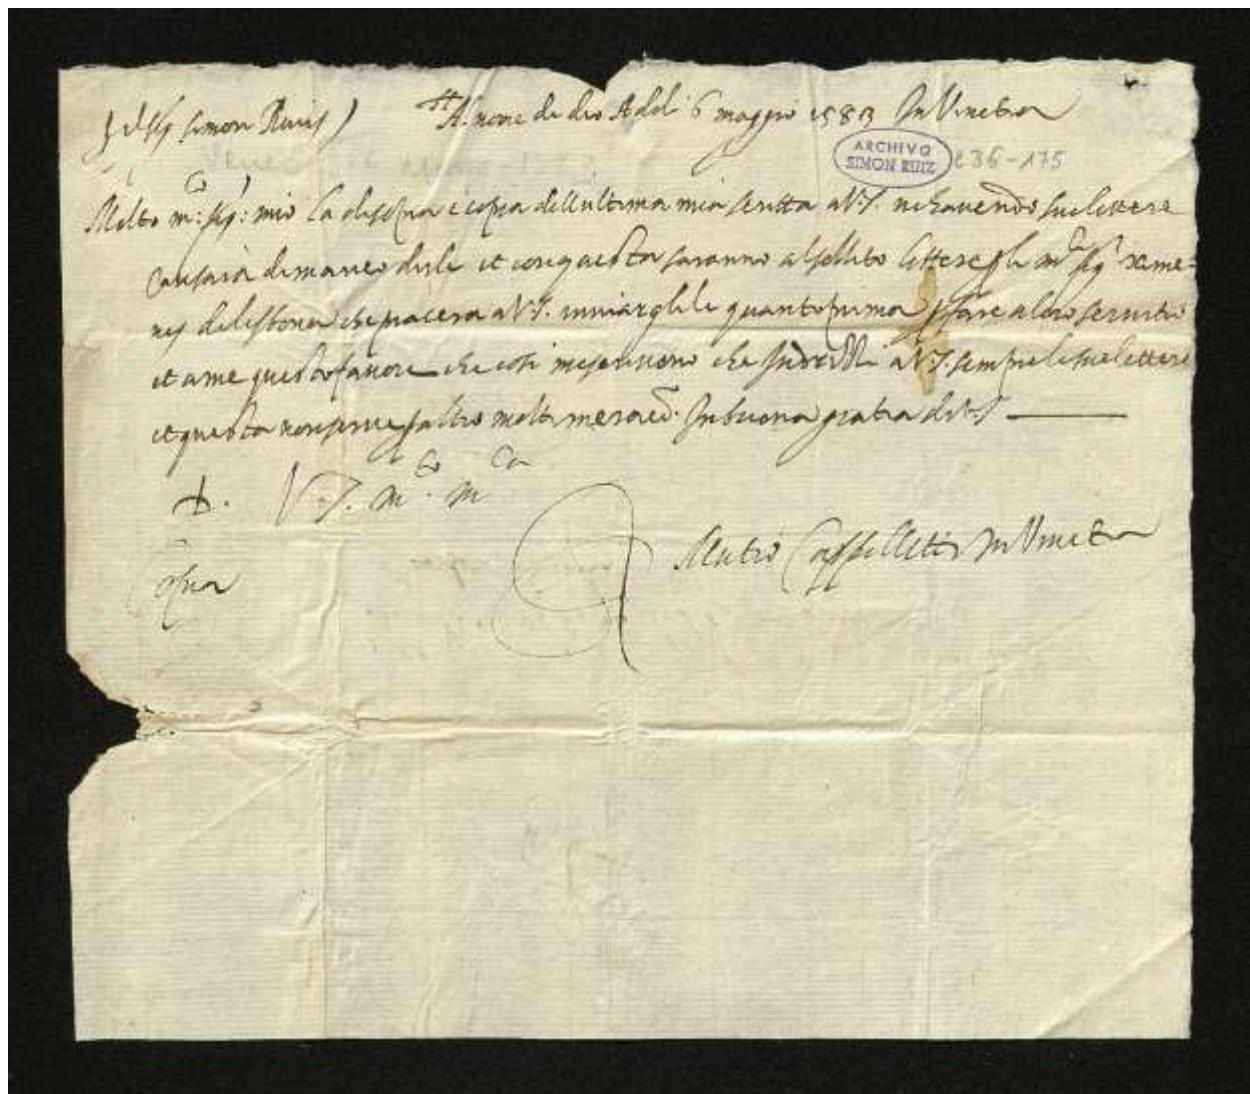 sig simon Ruis Al nome de dio Addi 6 maggio 1583 In Venetia
ARCHIVO
SIMON RUIZ
C 86-175
Molto m:co sig:r mio la disopra e copia dell ultima mia scritta a V.S. ne havendo sue lettere
causara di manco dirle et con questa saranno al sollito lettere p li m.ci sig.ri xime=
nes di lisbona che piacera a V.S. inviargle le quanto prima p fare a loro servitio
et a me questo favore che cosi mi scrivono che Indrizzi a V.S. sempre le sue lettere
et questa non serve p altro molto mi rac.do In buona gratia di V.S.
D. V.S. m.to m.ca
Mutio Cappelletti In Venetia
Copia